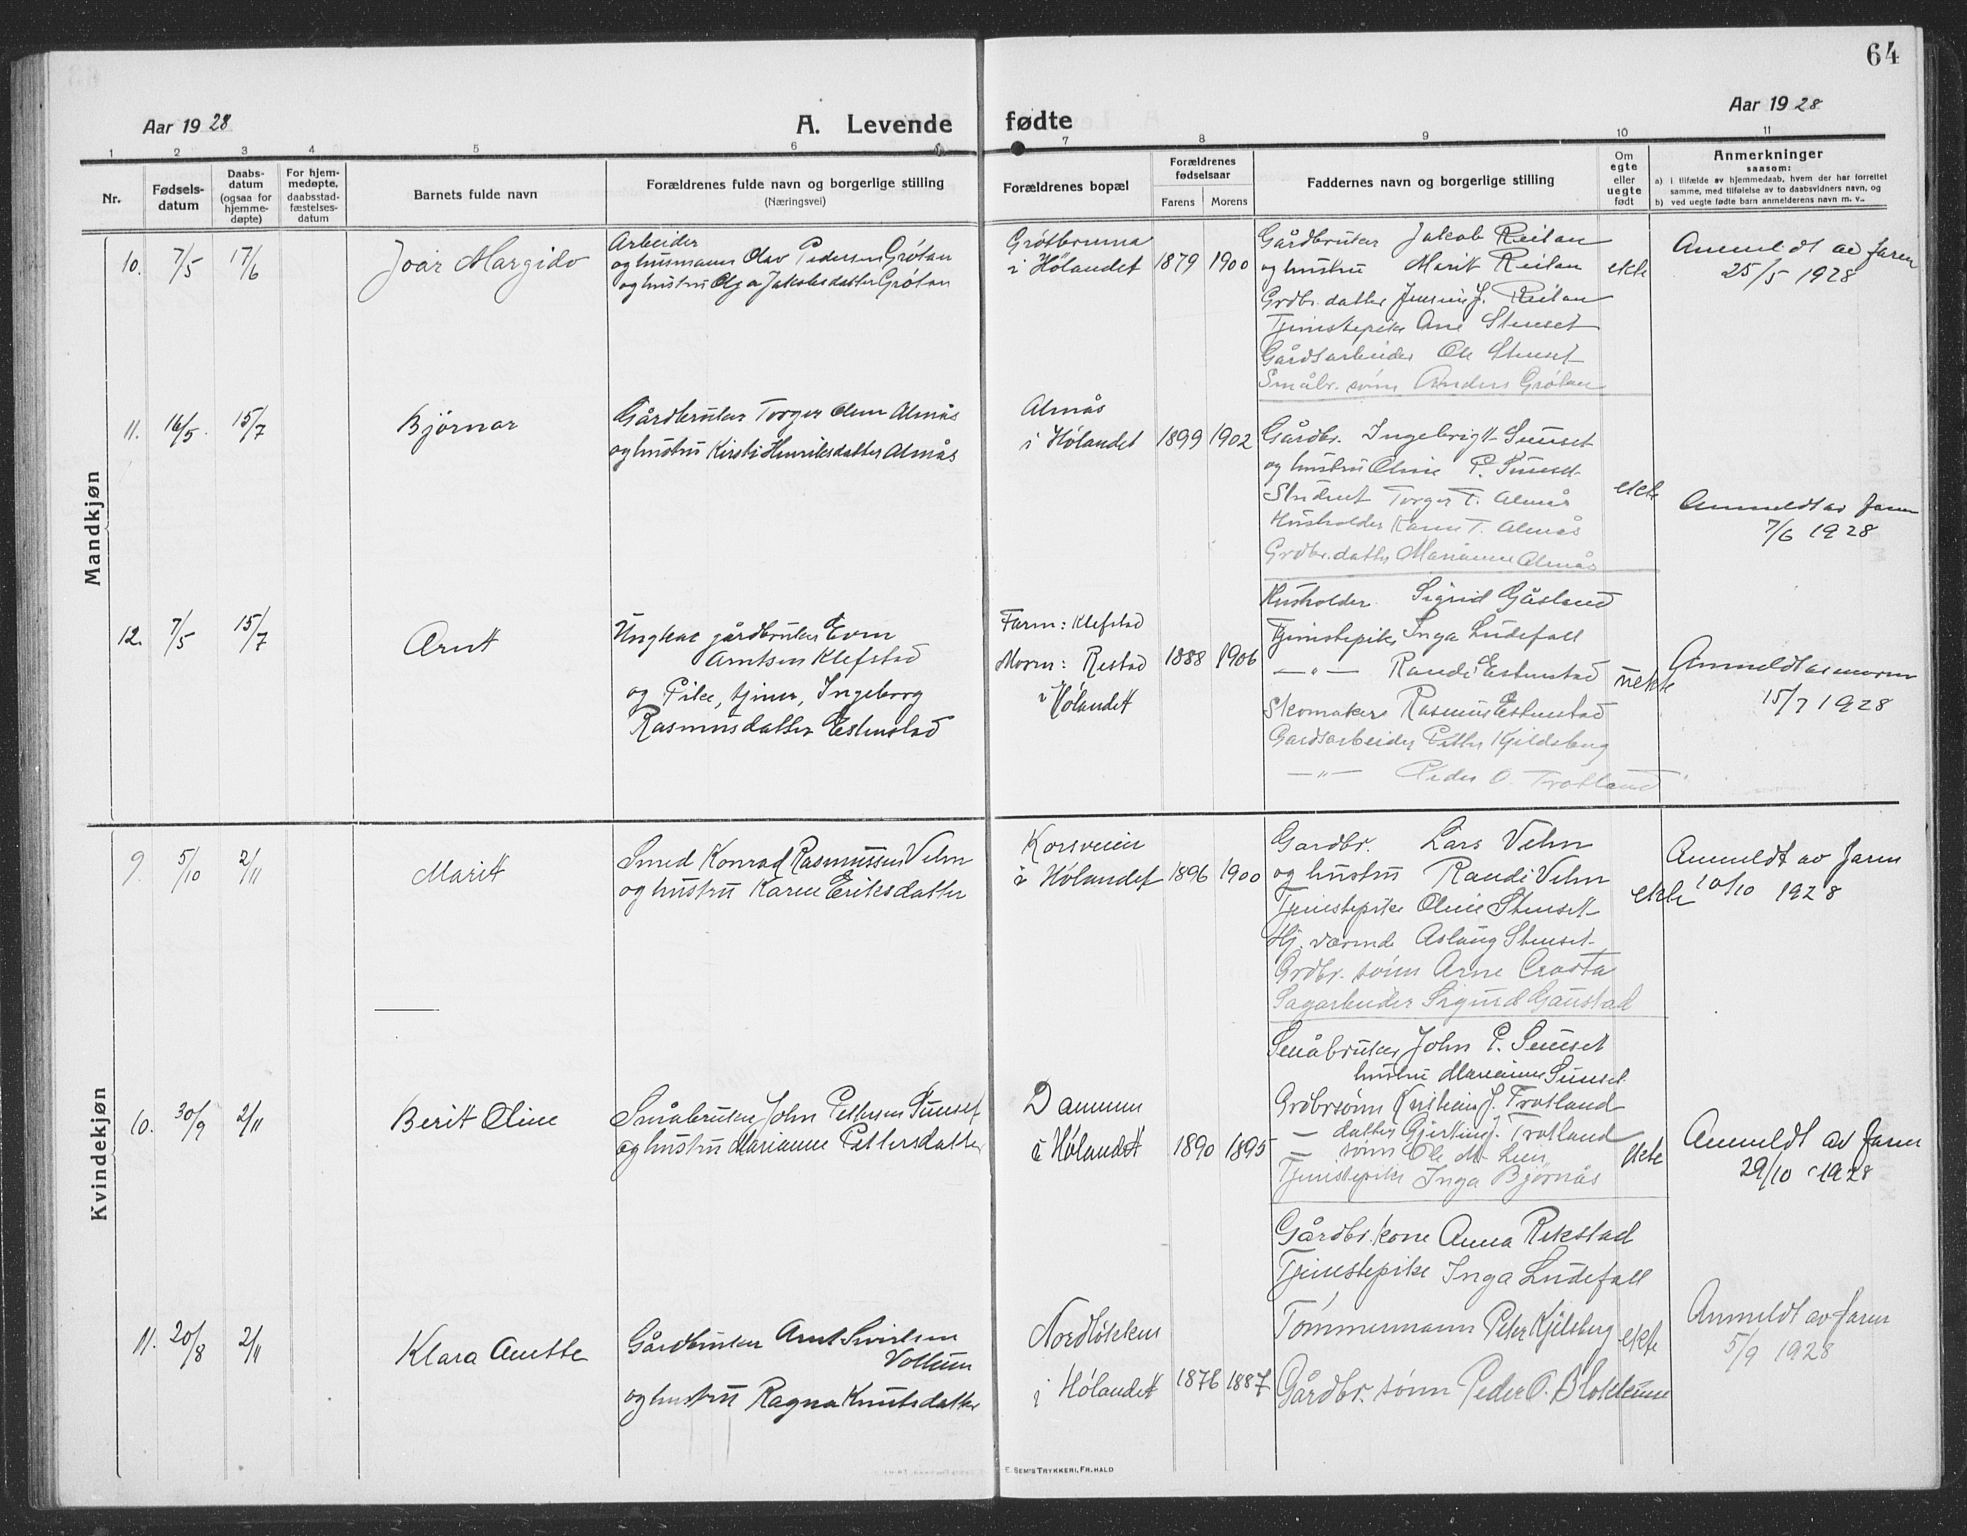 64
Aar 1928
A. Levende fødte
Aar 1928
1 2 3 4 5 6 7 8 9 10 11
Nr.
Fødsels-
datum
Daabs-
datum
(ogsaa for
hjemme-
døpte)
For hjem-
medøpte,
daabsstad-
fæstelses-
datum
Barnets fulde navn
Forældrenes fulde navn og borgerlige stilling
(Næringsvei)
Forældrenes bopæl
Forældrenes
fødselsaar
Farens Morens
Faddernes navn og borgerlige stilling
Om
egte
eller
uegte
født
Anmerkninger
saasom:
a) i tilfælde av hjemmedaab, hvem der har forrettet
samme, med tilføielse av to daabsvidners navn, og
b) ved uegte fødte barn anmelderens navn m. v..
Mandkjøn
10. 7/5 17/6
Joar Margido
Arbeider
og husmann Olav Pedersen Grøtan
og hustru Olga Jakobsdatter Grøtan
i Hølandet
1879 1900
Gårdbruker Jakob Reitan
og hustru Marit Reitan
Grdbr. datter J. Reitan
Tjenestepike Ane Stenset
Gårdsarbeider Ole Stenset
Småbr. sønn Anders Grøtan
ekte
Anmeldt av faren
25/5 1928
11. 16/5. 15/7
Bjørnar
Gårdbruker Torger Olsen Almås
og hustru Kirsti Henriksdatter Almås
Almås
i Hølandet
1899 1902
Gårdbr. Ingebrigt Sunset
og hustru Oline P. Sunset
Student Torger T. Almås
Husholder Karen T. Almås
Grdbr. datter Marianne Almås
ekte
Anmeldt av faren
7/6 1928
12. 7/5 15/7
Arnt
Ungkar gårdbruker Even
Arntsen Klefstad
og Pike, tjener, Ingeborg
Rasmusdatter Estenstad
Farm: Klefstad
Morm: Restad
i Hølandet
1888 1906
Husholder Sigrid Gåsland
Tjenstepike Inga Ludefall
—"— Randi Estenstad
Skomaker Rasmus Estenstad
Gardsarbeider Petter Kjeldsberg
—"— Peder O. Trotland
uekte
Anmeldt av moren
15/7 1928
Kvindekjøn
9. 5/10 2/11
Marit
Smed Konrad Rasmussen Vehn
og hustru Karen Eriksdatter
Korsveien
i Hølandet
1896 1900
Gardbr. Lars Vehn
og hustru Randi Vehn
Tjenestepike Oline Stenset
Hj. værende Aslaug Stenset
Grdbr. sønn Arne Krosta
Sagarbeider Sigurd Gaustad
ekte
Anmeldt av faren
10/10 1928
10. 30/9 2/11
Berit Oline
Småbruker John Pettersen Sunset
og hustru Marianne Pettersdatter
Dammen
i Hølandet
1890 1895
Småbruker John P. Sunset
hustru Marianne Sunset
Grdbrsønn Kristian J. Trotland
— datter Gjertine J. Trotland
— sønn Ole M. Lien
Tjenstepike Inga Bjørnås
ekte
Anmeldt av faren
29/10 1928
11. 20/8 2/11
Klara Anette
Gårdbruker Arnt Sivertsen
Vollum
og hustru Ragna Knutsdatter
Nordløkken
i Hølandet
1876 1887
Gårdbr. kone Anna Rekstad
Tjenestepike Inga Ludefall
Tømmermann Peter Kjelsberg
Gårdbr. sønn Peder O. Blokkum
ekte
Anmeldt av faren
5/9 1928
E. SEM'S TRYKKERI, FR.HALD